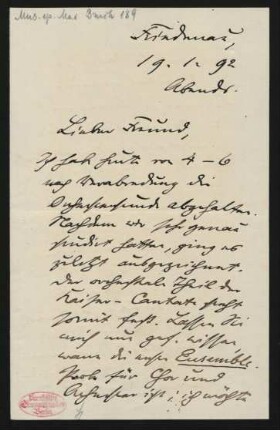 Mus. ep. Max Bruch 189
Friedenau,
19. 1. 92
Abends.
Lieber Freund,
Ich habe heute von 4 – 6
nach Verabredung die
Orchesterstunde abgehalten.
Nachdem wir sehr genau
studirt hatten, ging es
zuletzt ausgezeichnet.
Der orchestrale Theil der
Kaiser-Cantate steht
somit fest. Lassen Sie
mich nun gef. wissen
wann die erste Ensemble-
Probe für Chor und
Orchester ist; ich möchte
Berlin